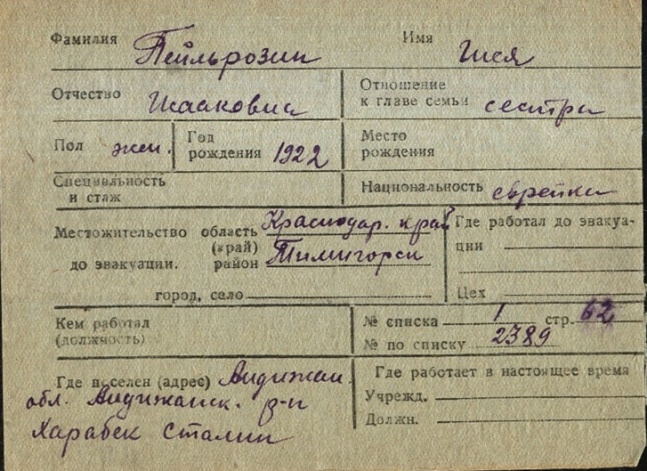 Фамилия Пейльрозин Имя Шея
Отчество Исааковна Отношение к главе семьи сестра
Пол жен. Год рождения 1922 Место рождения
Специальность и стаж Национальность еврейка
Местожительство область (край) Краснодар. край Где работал до эвакуации
до эвакуации. район Тимигорск
город, село Цех
Кем работал (должность) № списка 1 стр. 62
№ по списку 2389
Где поселен (адрес) Андижан. Где работает в настоящее время
обл. Андижанск. р-н Учрежд.
Харабек Сталин Должн.